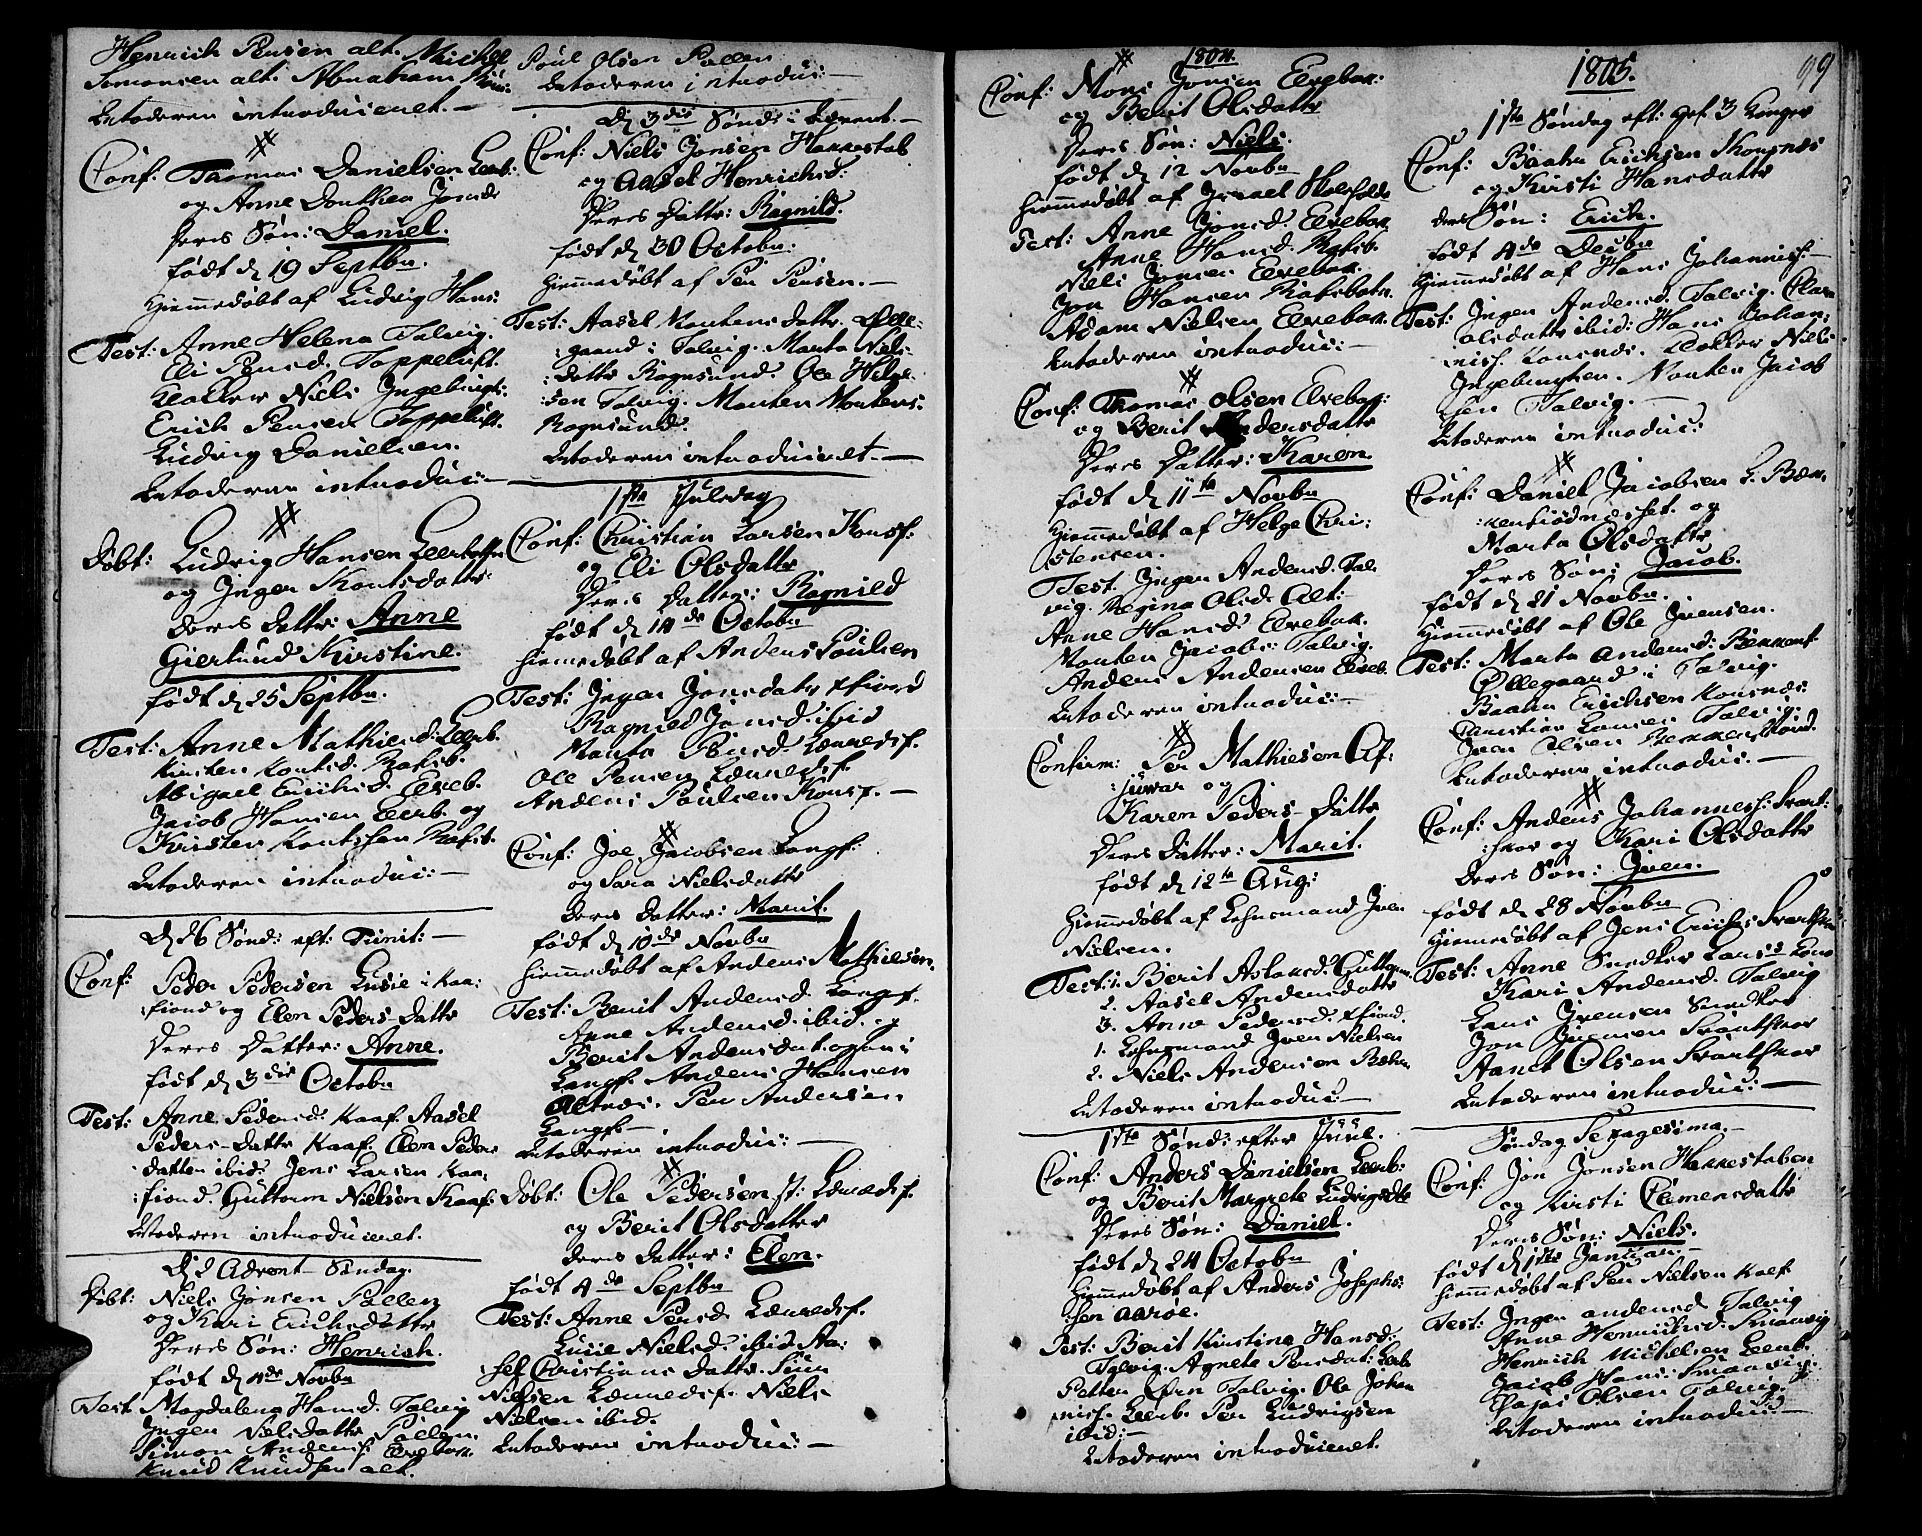 Henrich Persen alt. Michel
Simonsen alt. Abraham
Barderen introduceret.
#
Conf. Thomas Danielsen Leerb:
og Anne Dorthea Jonsd:
deres Søn: Daniel.
født d 19 Septbr.
hiemmedøbt af Ludvig Hans:
Test: Anne Helena Talvig.
Eli Persd. Toppeluft.
Klokker Niels Ingebrigt:
Erich Persen Toppeluft.
Ludvig Danielsen.
Barderen introduc:
#
Døbt: Ludvig Hansen Leerbotten
og Inger Knutsdatter
deres Dattr: Anne
Giertrud Kirstine.
født d 25 Septbr.
Test: Anne Mathisd. Leerb.
Kirsten Knutsd. Rafsb.
Abigael Erichsd. Elveb.
Jacob Hansen Leerb. og
Kirsten Knutssen Rafsb.
Barderen introduc:
D 26 Sønd: eft: Trinit:
Conf: Peder Pedersen Lusie i Kaa:
fiord og Elen Peders Dattr
deres Datter: Anne.
født d 3die Octobr
Test: Anne Pedersd: Kaaf. Aasel
Peders-Dattr Kaaf. Elen Peders
datter ibid. Jens Larsen Kaa:
fiord. Guttorm Nielsen Kaaf.
Barderen introduceret.
D 2 Advent Søndag.
Døbt: Niels Jonsen Pollen
og Kari Erichsdatter
deres Søn: Henrich.
født d 4de Novbr
Test Magdalena Hansd. Talvig
Inger Nielsdatter Pollen
Simon Anders: Elvebak.
Knud Knudsen alt.
Poul Olsen Pollen
Barderen introduc:
D 3die Sønd: i Advent.
Conf: Niels Jonsen Hakkestab
og Aasel Henrichsd:
deres Dattr: Ragnild.
født d 30 Octobr:
hiemmedøbt af Per Persen.
Test: Aasel Mortensdattr. Ølle:
gaard i Talvig. Marta Niels:
dattr Rognsund. Ole Helge:
sen Talvig. Morten Mortens:
Rognsund.
Barderen introduceret.
1ste Juledag
Conf: Christian Larsen Korsf:
og Eli Olsdattr
deres Datter: Ragnild
født d 14de Octobr
hiemedøbt af Anders Poulsen
Test: Inger Jonsdatr fiord
Ragnild Jonsd. ibid
Marta Persd.
Ole Persen
Anders Poulsen Korsf.
#
Conf: Joe Jacobsen Langf:
og Sara Nielsdattr
deres Datter: Marit.
født d 10de Novbr
hiemmedøbt af Anders Mathiesen.
Test: Berit Andersd. Langf.
Anne Andersd. ibid. og
Berit Andersdat. ogsaa i
Langf. Anders Hansen
Altnes. Per Andersen
Langf.
Barderen introduc:
#
Døbt: Ole Pedersen st:
og Berit Olsdatter
deres Datter: Elen.
født 4de Septbr
Test: Anne Persd.
Lusie Nielsd. ibid. Aa:
sel Christians Dattr. Siur
Nielsen Niels
Nielsen ibid.
Barderen introduc:
1804.
#
Conf: Mons Jonsen Elvebak:
og Berit Olsdattr
deres Søn: Niels.
født d 12 Novbr
hiemmedøbt af Israel
Test: Anne Jonsd. Elvebak.
Anne Hansd. Rafsb.
Niels Jonsen Elvebak.
Jon Hansen Rafsbotn.
Adam Nielsen Elvebak.
Barderen introduc:
#
Conf: Thomas Olsen Elvebak:
og Berit Andersdattr
deres Datter: Karen
født d 11te Novbr
hiemmedøbt af Helge Chri:
stensen.
Test. Inger Andersd. Tal:
vig. Regina Olsd. Alt:
Anne Hansd. Elvebak.
Morten Jacobs: Talvig.
Anders Andersen Elveb.
Barderen introduc:
#
Confirm: Per Mathiesen Af:
juvar og
Karen Peders-Dattr
deres Datter: Marit.
født d 12te Aug:
hiemmedøbt af Lehnsmand Iver
Nielsen.
Test: 1. Berit Aslaksd. Guttorm.
2. Aasel Andersdattr
3. Anne Pedersd. fiord.
1. Lehnsmand Iver Nielsen
2. Niels Andersen
Barderen introduc:
1ste Sønd: efter Juul.
Conf: Anders Danielsen Leerb:
og Berit Margrete Ludvigsdtr
deres Søn: Daniel.
født d 24 Octobr
hiemmedøbt af Anders Josephs:
sen Aarøe.
Test: Berit Kirstine Hansd:
Talvig. Agnete Persdat: Leerb
Petter Talvig. Ole Johan
nisf. Leerb. Per Ludvigsen
ibid:
Barderen introduceret.
1805.
99
1ste Søndag eft: Hel: 3 Konger
Conf: Baahn Erichsen Korsnes
og Kirsti Hansdattr
deres Søn: Erich.
født 4de Decbr
hiemmedøbt af Hans Johannisf:
Test: Inger Andersd. Talvig. Clara
Olsdattr ibid: Hans Johan:
nisf. Korsnes. Klokker Niels
Ingebrigtsen. Morten Jacob
sen Talvig.
Barderen introduc:
#
Conf: Daniel Jacobsen
og
Marta Olsdattr
deres Søn: Jacob.
født d 21 Novbr.
hiemmedøbt af Ole Iversen.
Test: Marta Andersd:
Øllegaard i Talvig.
Baahn Erichsen Korsnes:
Christian Larsen Talvig.
Iver Olsen
Barderen introduc:
#
Conf: Anders Johannesf: Svart:
skor og Kari Olsdattr
deres Søn: Iver.
født d 28 Novbr
hiemmedøbt af Jens Erichs: Svartskor
Test: Anne Snedker Larses Kone
Kari Andersd. Talvig
Lars Iversen Snedker
Jon Svartskor
Aanet Olsen Svartskor
Barderen introduc:
Søndag Sexagesima.
Conf: Jon Jonsen Hakkestaben
og Kirsti Clemensdattr
deres Søn: Niels.
født d 1ste Januar:
hiemmedøbt af Per Nielsen Kaaf.
Test: Inger Andersd Talvig
Anne Henrichsd: Smaavig
Henrich Michelsen Leerb.
Jacob Hans: Smaavig:
Olsen Talvig.
Barderen introduc: